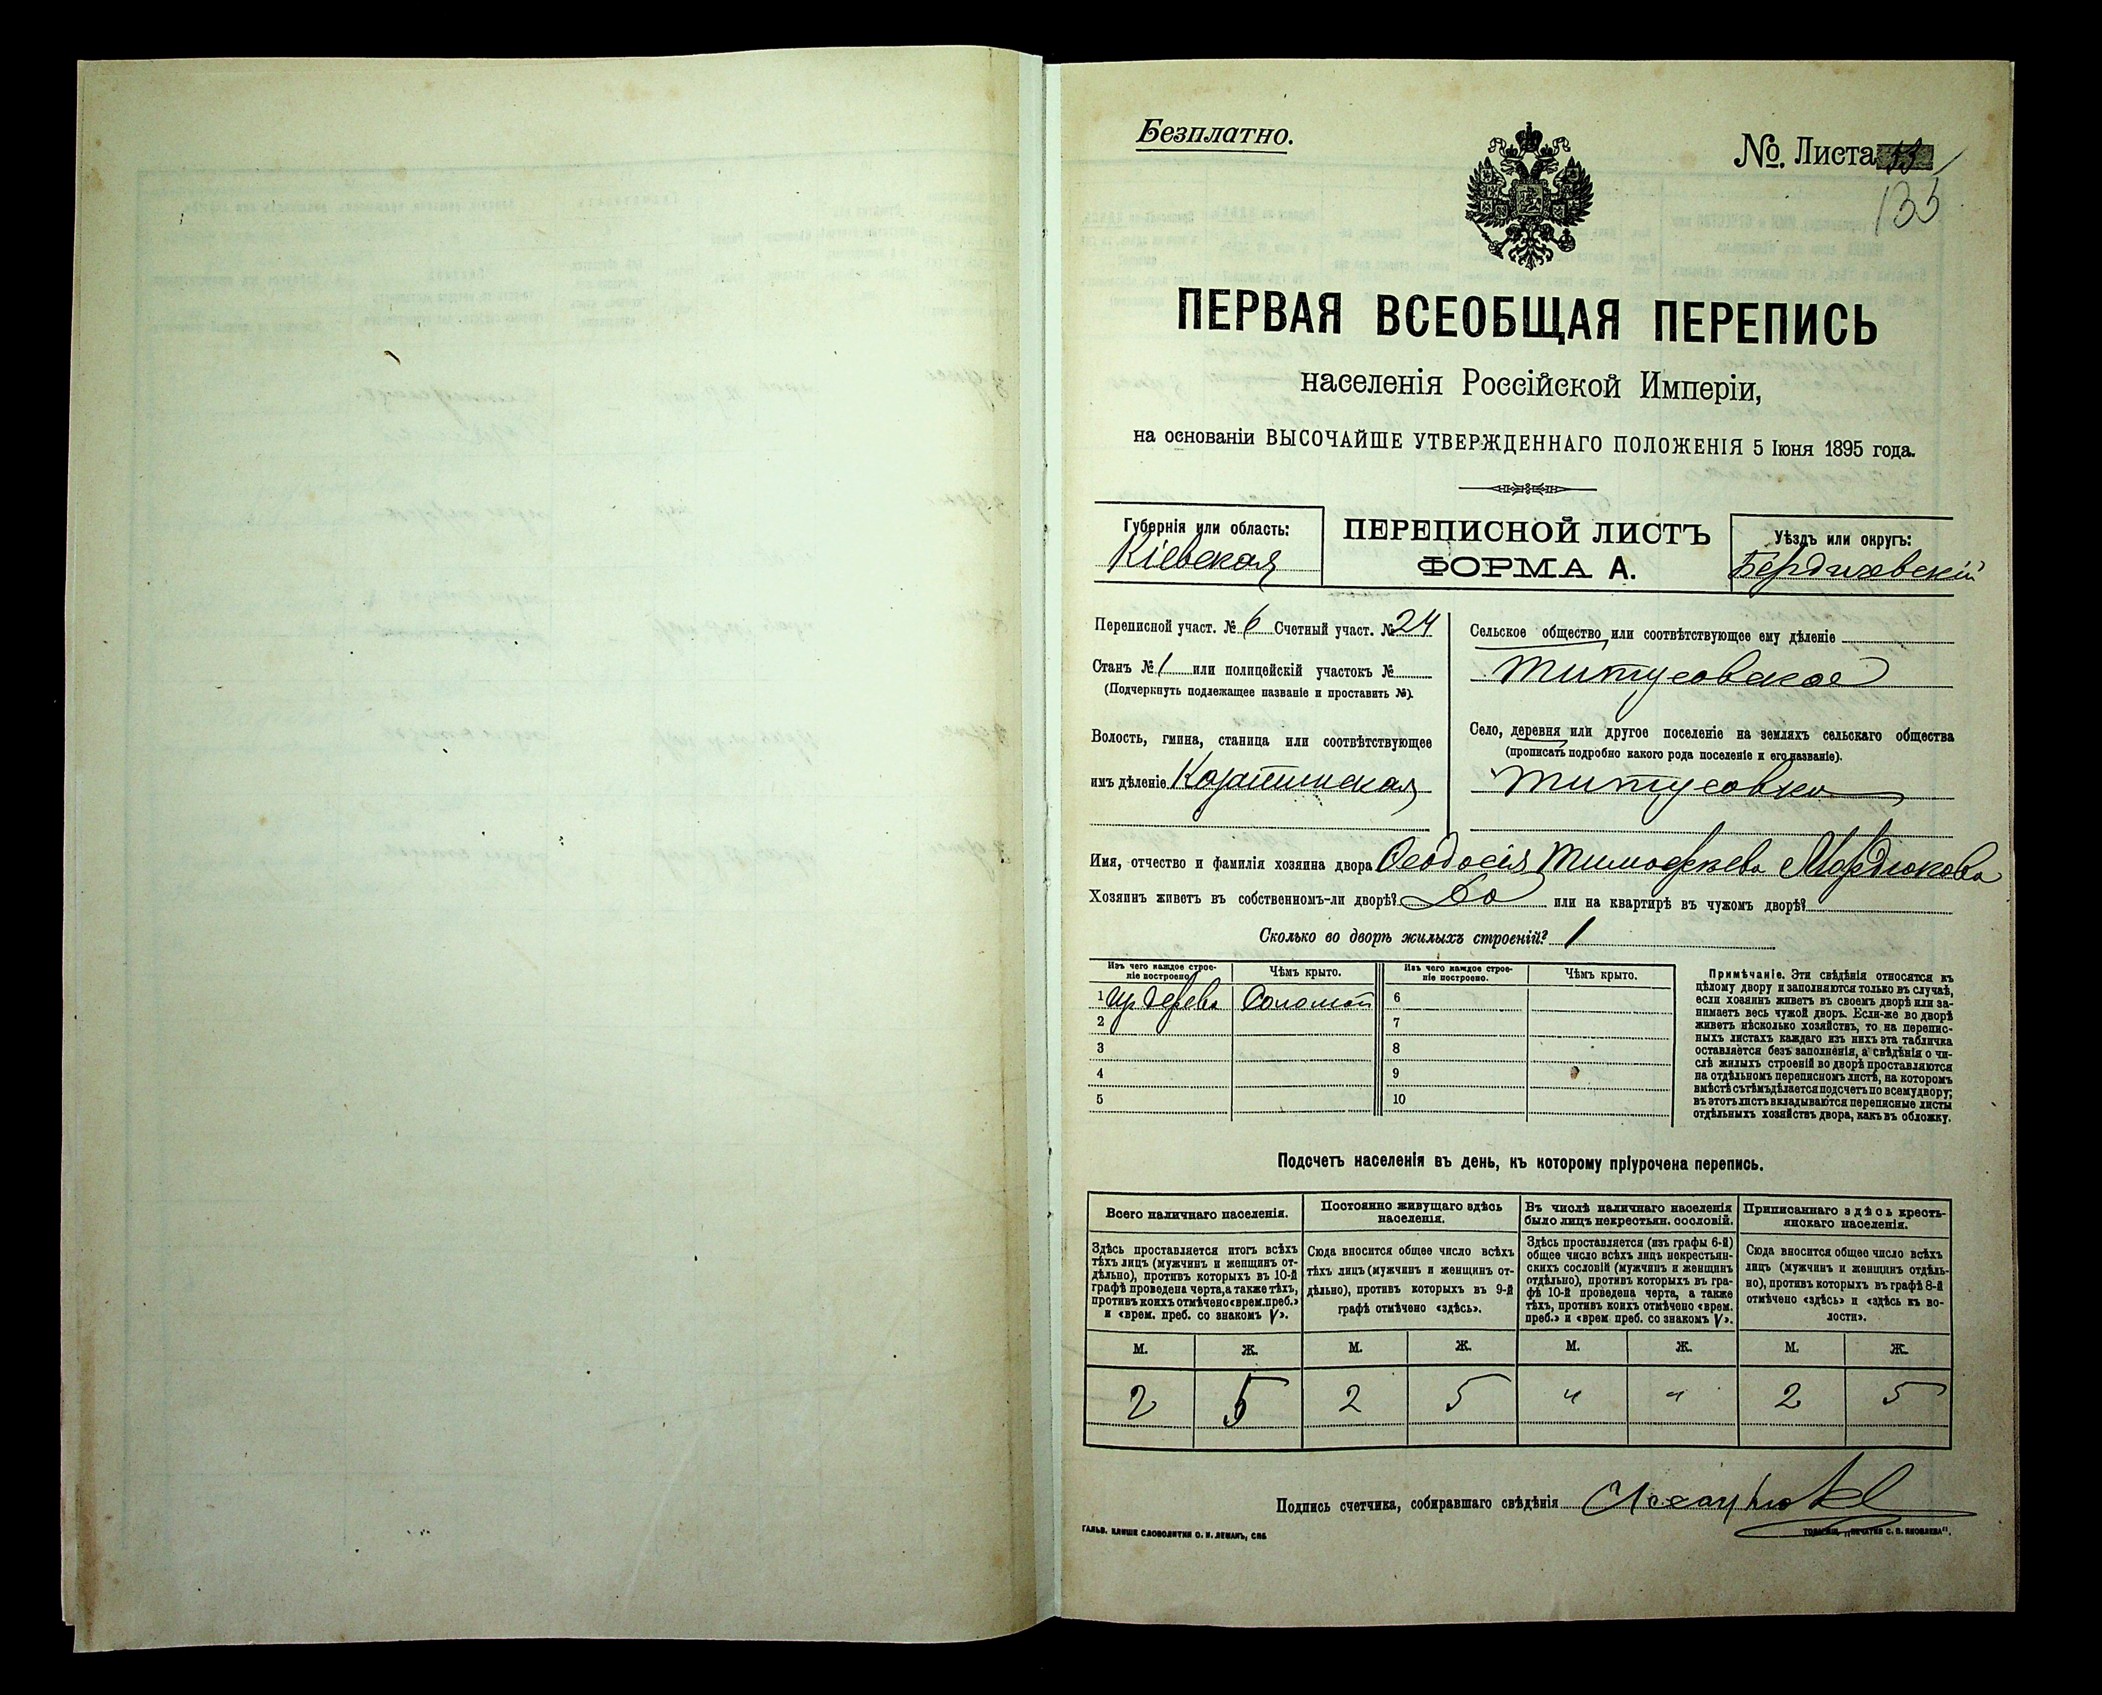 Безплатно.
№. Листа 33
133
ПЕРВАЯ ВСЕОБЩАЯ ПЕРЕПИСЬ
населенія Россійской Имперіи,
на основаніи ВЫСОЧАЙШЕ УТВЕРЖДЕННАГО ПОЛОЖЕНІЯ 5 Іюня 1895 года.
Губернія или область:
Кіевская
ПЕРЕПИСНОЙ ЛИСТЪ
ФОРМА А.
Уѣздъ или округъ:
Бердичевскій
Переписной участ. № 6 Счетный участ. № 24
Станъ № 1 или полицейскій участокъ №
(Подчеркнуть подлежащее названіе и проставить №).
Волость, гмина, станица или соотвѣтствующее
имъ дѣленіе
Сельское общество или соотвѣтствующее ему дѣленіе
Титусовское
Село, деревня или другое поселеніе на земляхъ сельскаго общества
(прописать подробно какого рода поселеніе и его названіе).
Титусовка
Имя, отчество и фамилія хозяина двора Ѳеодосія Тимофѣева Мардюкова
Хозяинъ живетъ въ собственномъ-ли дворѣ? Да или на квартирѣ въ чужомъ дворѣ?
Сколько во дворѣ жилыхъ строеній? 1
Изъ чего каждое строе-
ніе построено.
Чѣмъ крыто.
Изъ чего каждое строе-
ніе построено.
Чѣмъ крыто.
1 изъ дерева Соломой 6
2 7
3 8
4 9
5 10
Примѣчаніе. Эти свѣдѣнія относятся къ
цѣлому двору и заполняются только въ случаѣ,
если хозяинъ живетъ въ своемъ дворѣ или за-
нимаетъ весь чужой дворъ. Если-же во дворѣ
живетъ нѣсколько хозяйствъ, то на перепис-
ныхъ листахъ каждаго изъ нихъ эта табличка
оставляется безъ заполненія, а свѣдѣнія о чи-
слѣ жилыхъ строеній во дворѣ проставляются
на отдѣльномъ переписномъ листѣ, на которомъ
вмѣстѣ съ тѣмъ дѣлается подсчетъ по всему двору;
въ этотъ листъ вкладываются переписные листы
отдѣльныхъ хозяйствъ двора, какъ въ обложку.
Подсчетъ населенія въ день, къ которому пріурочена перепись.
Всего наличнаго населенія.
Здѣсь проставляется итогъ всѣхъ
тѣхъ лицъ (мужчинъ и женщинъ от-
дѣльно), противъ которыхъ въ 10-й
графѣ проведена черта, а также тѣхъ,
противъ коихъ отмѣчено «врем. преб.»
и «врем. преб. со знакомъ V».
Постоянно живущаго здѣсь
населенія.
Сюда вносится общее число всѣхъ
тѣхъ лицъ (мужчинъ и женщинъ от-
дѣльно), противъ которыхъ въ 9-й
графѣ отмѣчено «здѣсь».
Въ числѣ наличнаго населенія
было лицъ некрестьян. сословій.
Здѣсь проставляется (изъ графы 6-й)
общее число всѣхъ лицъ некрестьян-
скихъ сословій (мужчинъ и женщинъ
отдѣльно), противъ которыхъ въ гра-
фѣ 10-й проведена черта, а также
тѣхъ, противъ коихъ отмѣчено «врем.
преб.» и «врем преб. со знакомъ V».
Приписаннаго здѣсь кресть-
янскаго населенія.
Сюда вносится общее число всѣхъ
лицъ (мужчинъ и женщинъ отдѣль-
но), противъ которыхъ въ графѣ 8-й
отмѣчено «здѣсь» и «здѣсь къ во-
лости».
М. Ж. М. Ж. М. Ж. М. Ж.
2 5 2 5 " " 2 5
Подпись счетчика, собиравшаго свѣдѣнія
ГАЛЬВ. КЛИШЕ СЛОВОЛИТНИ О. И. ЛЕМАНЪ, СПБ
ТОВАРИЩ. „ПЕЧАТНЯ С. П. ЯКОВЛЕВА".